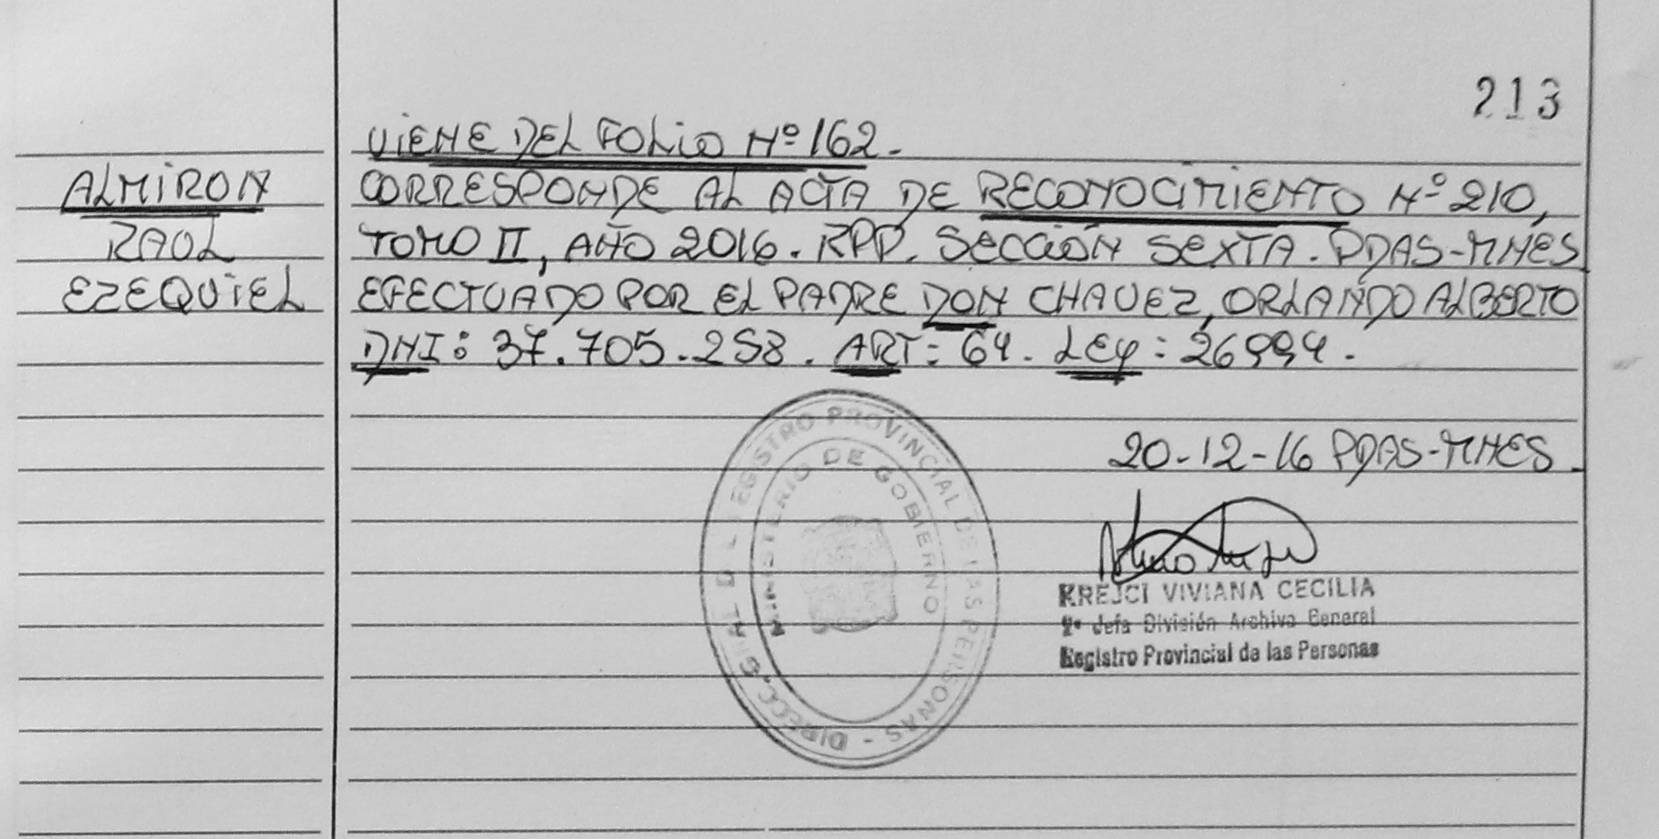 213
VIENE DEL FOLIO Nº 162.
ALMIRON
RAUL
EZEQUIEL
CORRESPONDE AL ACTA DE RECONOCIMIENTO Nº 210,
TOMO II, AÑO 2016. RPP. SECCIÓN SEXTA. PDAS-MNES
EFECTUADO POR EL PADRE DON CHAVEZ, ORLANDO ALBERTO
DNI: 37.705.258. ART: 64. LEY: 26994.
20-12-16 PDAS-MNES.
DIRECC. GRAL DEL REGISTRO PROVINCIAL DE LAS PERSONAS -
MINISTERIO DE GOBIERNO
KREJCI VIVIANA CECILIA
2ª Jefa División Archivo General
Registro Provincial de las Personas